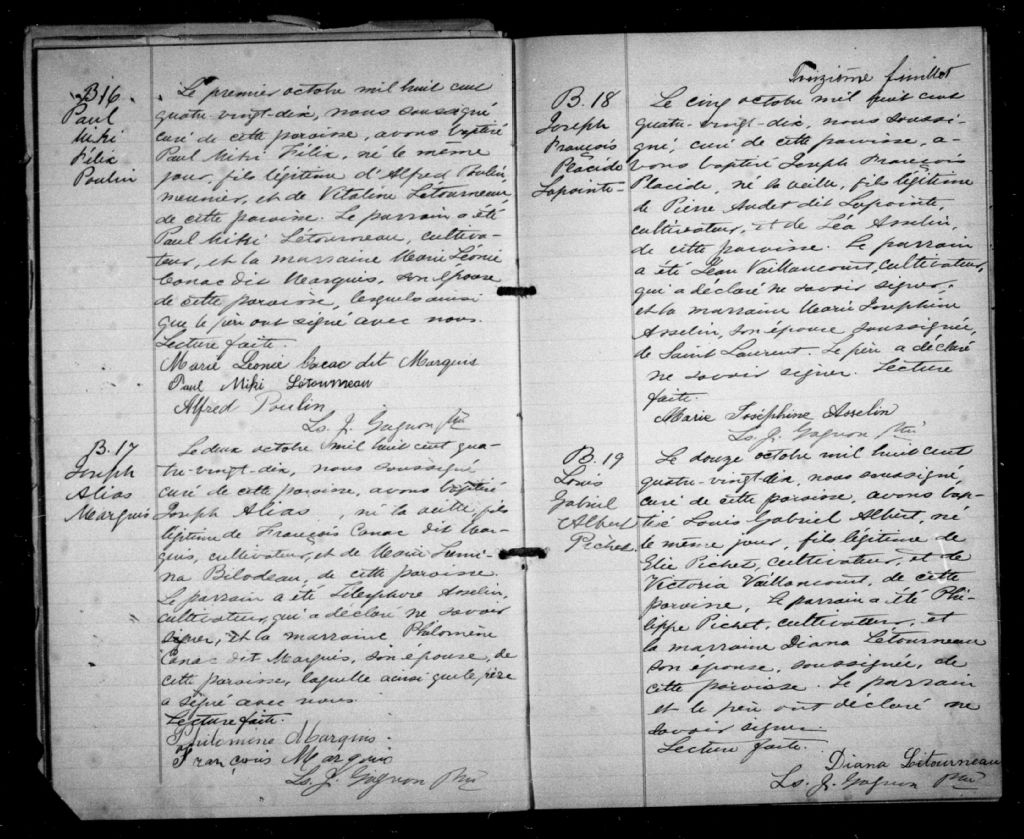 B16
Paul
Miki
Félix
Poulin
Le premier octobre mil huit cent
quatre-vingt-dix, nous soussigné
curé de cette paroisse, avons baptisé
Paul Miki Félix, né le même
jour, fils légitime d'Alfred Poulin,
meunier, et de Vitaline Létourneau,
de cette paroisse. Le parrain a été
Paul Miki Létourneau, cultiva-
teur, et la marraine Marie Léonie
Canac dit Marquis, son épouse
de cette paroisse, lesquels ainsi
que le père ont signé avec nous.
Lecture faite.
Marie Leonie Cacac dit Marquis
Paul Miki Létourneau
Alfred Poulin
Ls. J. Gagnon Ptre
B.17
Joseph
Alias
Marquis
Le deux octobre mil huit cent qua-
tre-vingt-dix, nous soussigné
curé de cette paroisse, avons baptisé
Joseph Alias, né la veille, fils
légitime de François Canac dit Mar-
quis, cultivateur, et de Marie Lumi-
na Bilodeau, de cette paroisse.
Le parrain a été Télesphore Asselin,
cultivateur, qui a déclaré ne savoir
signer, et la marraine Philomène
Canac dit Marquis, son épouse, de
cette paroisse, laquelle ainsi que le père
a signé avec nous.
Lecture faite.
Philomine Marquis
François Marquis
Ls. J. Gagnon Ptre
Treizième feuillet
B.18
Joseph
François
Placide
Lapointe
Le cinq octobre mil huit cent
quatre-vingt-dix, nous soussi-
gné, curé de cette paroisse, a-
vons baptisé Joseph François
Placide, né la veille, fils légitime
de Pierre Audet dit Lapointe,
cultivateur, et de Léa Asselin,
de cette paroisse. Le parrain
a été Jean Vaillancourt, cultivateur,
qui a déclaré ne savoir signer,
et la marraine Marie Josephine
Asselin, son épouse soussignée,
de Saint Laurent. Le père a déclaré
ne savoir signer. Lecture
faite.
Marie Joséphine Asselin
Ls. J. Gagnon Ptre
B.19
Louis
Gabriel
Albert
Pichet
Le douze octobre mil huit cent
quatre-vingt-dix, nous soussigné,
curé de cette paroisse, avons bap-
tisé Louis Gabriel Albert, né
le même jour, fils légitime de
Elie Pichet, cultivateur, et de
Victoria Vaillancourt, de cette
paroisse. Le parrain a été Phi-
lippe Pichet, cultivateur, et
la marraine Diana Létourneau
son épouse, soussignée, de
cette paroisse. Le parrain
et le père ont déclaré ne
savoir signer.
Lecture faite.
Diana Létourneau
Ls. J. Gagnon Ptre